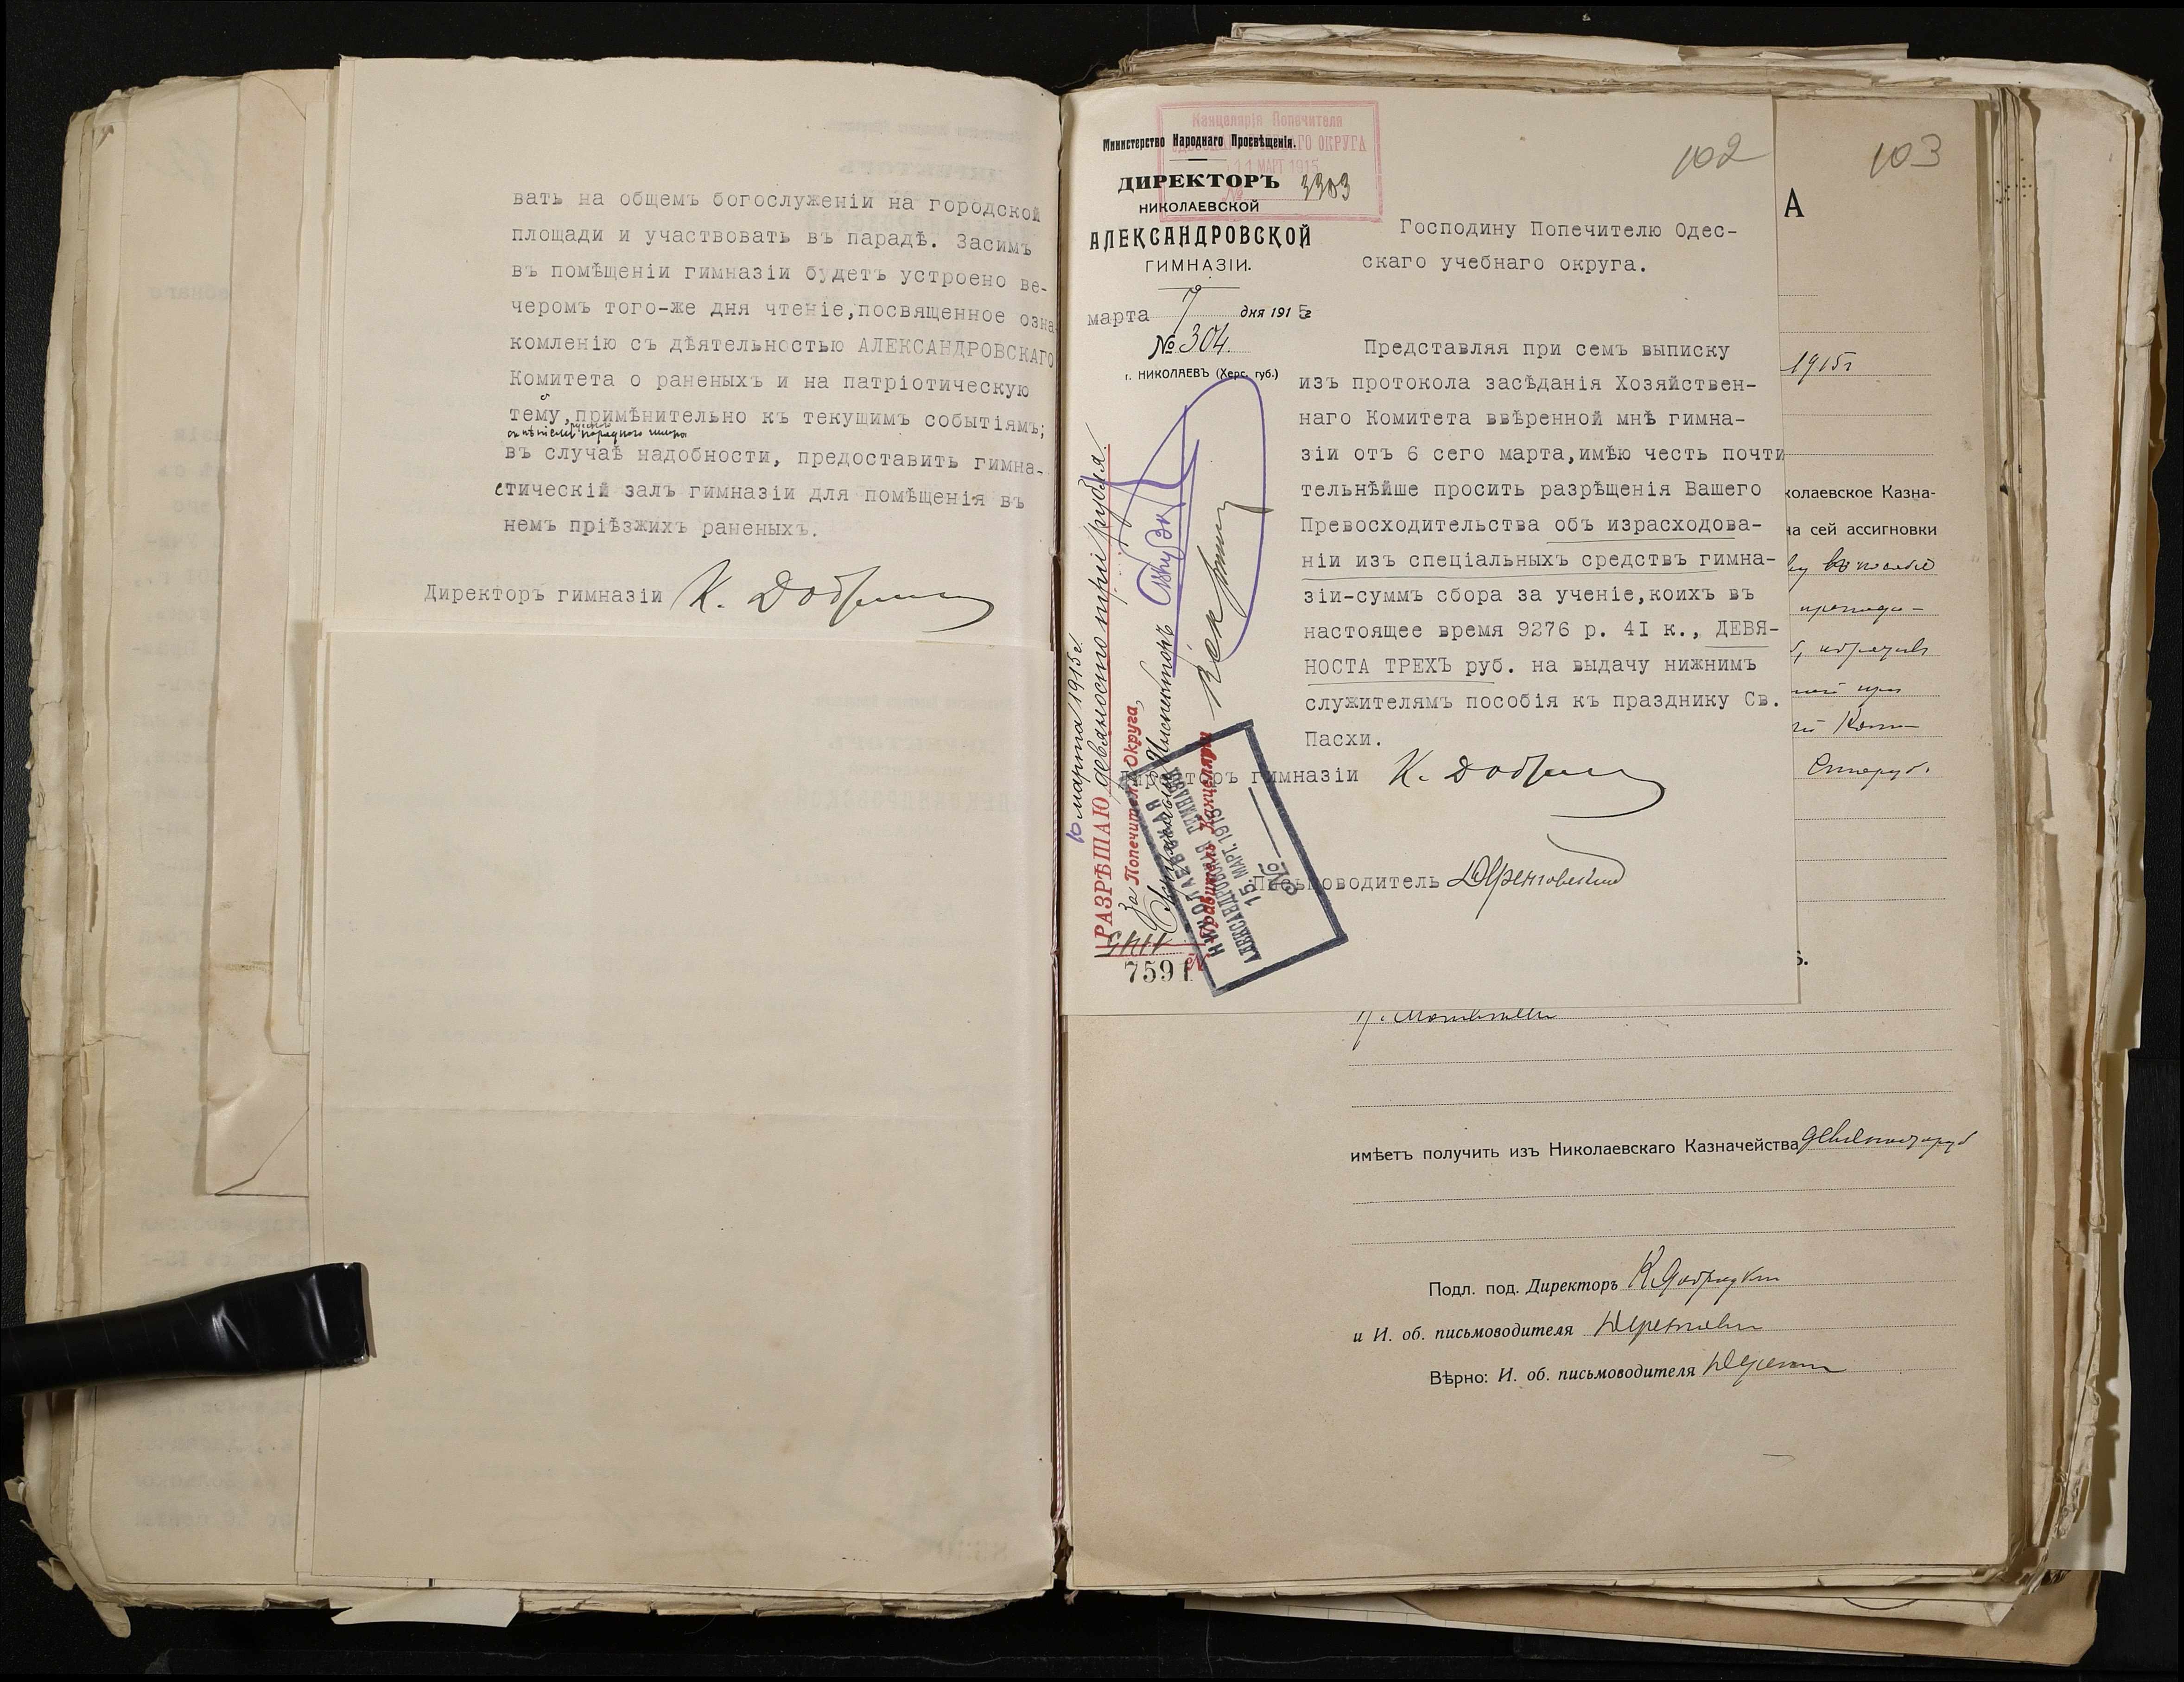 вать на общемъ богослуженіи на городской
площади и участвовать въ парадѣ. Засимъ
въ помѣщеніи гимназіи будетъ устроено ве-
черомъ того-же дня чтеніе,посвященное озна-
комленію съ дѣятельностью АЛЕКСАНДРОВСКАГО
Комитета о раненыхъ и на патріотическую
тему,примѣнительно къ текущимъ событіямъ;
въ случаѣ надобности, предоставить гимна-
стическій залъ гимназіи для помѣщенія въ
немъ пріѣзжихъ раненыхъ.
Директоръ гимназіи
102
Канцелярія Попечителя
ОДЕССКАГО УЧЕБНАГО ОКРУГА
МАРТ 1915
№ 3303
Министерство Народнаго Просвѣщенія.
ДИРЕКТОРЪ
НИКОЛАЕВСКОЙ
АЛЕКСАНДРОВСКОЙ
ГИМНАЗІИ.
марта 7 дня 1915 г
№ 304.
г. НИКОЛАЕВЪ (Херс. губ.)
Господину Попечителю Одес-
скаго учебнаго округа.
Представляя при семъ выписку
изъ протокола засѣданія Хозяйствен-
наго Комитета ввѣренной мнѣ гимна-
зіи отъ 6 сего марта,имѣю честь почти
тельнѣйше просить разрѣщенія Вашего
Превосходительства объ израсходова-
ніи изъ спеціальныхъ средствъ гимна-
зіи-суммъ сбора за ученіе,коихъ въ
настоящее время 9276 р. 4I к., ДЕВЯ-
НОСТА ТРЕХЪ руб. на выдачу нижнимъ
служителямъ пособія къ празднику Св.
Пасхи.
Директоръ гимназіи
Письмоводитель
10 марта 1915 г.
РАЗРѢШАЮ девяносто три рубля.
За Попечителя Округа,
Окружный Инспекторъ
Правитель Канцеляріи
НИКОЛАЕВСКАЯ
АЛЕКСАНДРОВСКАЯ ГИМНАЗІЯ
15. МАРТ. 1915
№
7591
103
А
1915г
колаевское Казна-
на сей ассигновки
имѣетъ получить изъ Николаевскаго Казначейства
Подл. под. Директоръ
и И. об. письмоводителя
Вѣрно: И. об. письмоводителя